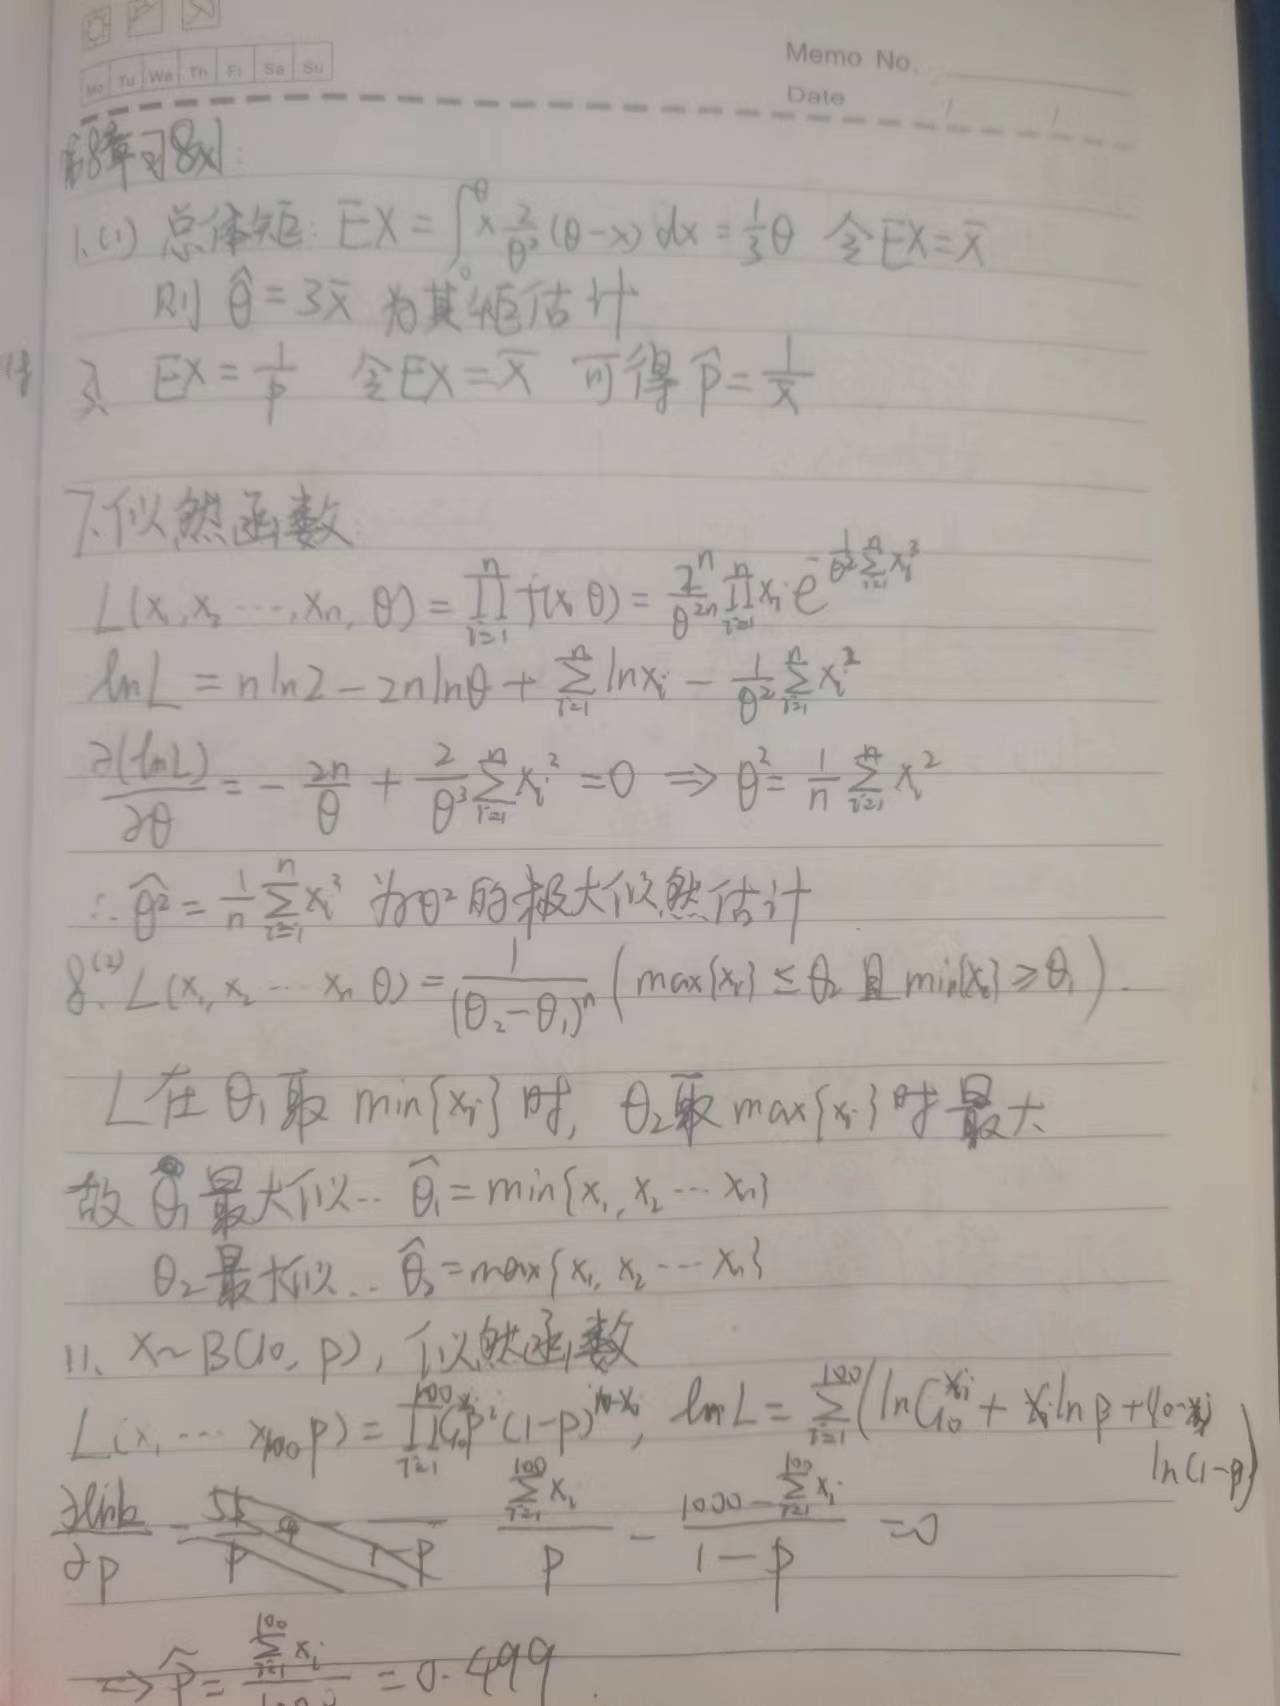 Memo No.
Mo Tu We Th Fr Sa Su
Date / /
第8章习8×1:
1.(1) 总体矩: EX = ∫₀^θ x 2/θ² (θ-x) dx = 1/3 θ 令EX = x̄
则 θ̂ = 3x̄ 为其矩估计
3. EX = 1/p 令EX = x̄ 可得 p̂ = 1/x̄
7.似然函数
L(x₁,x₂ ⋯,xₙ, θ) = ∏ᵢ₌₁ⁿ f(xᵢ θ) = 2ⁿ/θ²ⁿ ∏ᵢ₌₁ⁿ xᵢ e^(-1/θ² ∑ᵢ₌₁ⁿ xᵢ³)
lnL = nln2 - 2nlnθ + ∑ᵢ₌₁ⁿ lnxᵢ - 1/θ² ∑ᵢ₌₁ⁿ xᵢ²
∂(lnL)/∂θ = - 2n/θ + 2/θ³ ∑ᵢ₌₁ⁿ xᵢ² = 0 ⇒ θ² = 1/n ∑ᵢ₌₁ⁿ xᵢ²
∴ θ̂² = 1/n ∑ᵢ₌₁ⁿ xᵢ³ 为θ²的极大似然估计
8.(2) L(x₁, x₂ ⋯ xₙ θ) = 1/(θ₂-θ₁)ⁿ (max{xᵢ} ≤ θ₂ 且 min{xᵢ} ≥ θ₁).
L在θ₁取 min{xᵢ}时, θ₂取max{xᵢ}时最大
故 θ₁最大似.. θ̂₁ = min{x₁, x₂ ⋯ xₙ}
θ₂最大似.. θ̂₂ = max{x₁, x₂ ⋯ xₙ}
11、X~B(10, p), 似然函数
L(x₁ ⋯ x₁₀₀ p) = ∏ᵢ₌₁¹⁰⁰ C₁₀^xᵢ p^xᵢ (1-p)^(10-xᵢ), lnL = ∑ᵢ₌₁¹⁰⁰ (lnC₁₀^xᵢ + xᵢlnp + (10-xᵢ)
ln(1-p))
∂lnL/∂p = ∑ᵢ₌₁¹⁰⁰ xᵢ/p - (1000 - ∑ᵢ₌₁¹⁰⁰ xᵢ)/(1-p) = 0
⇒ p̂ = ∑ᵢ₌₁¹⁰⁰ xᵢ/1000 = 0.499